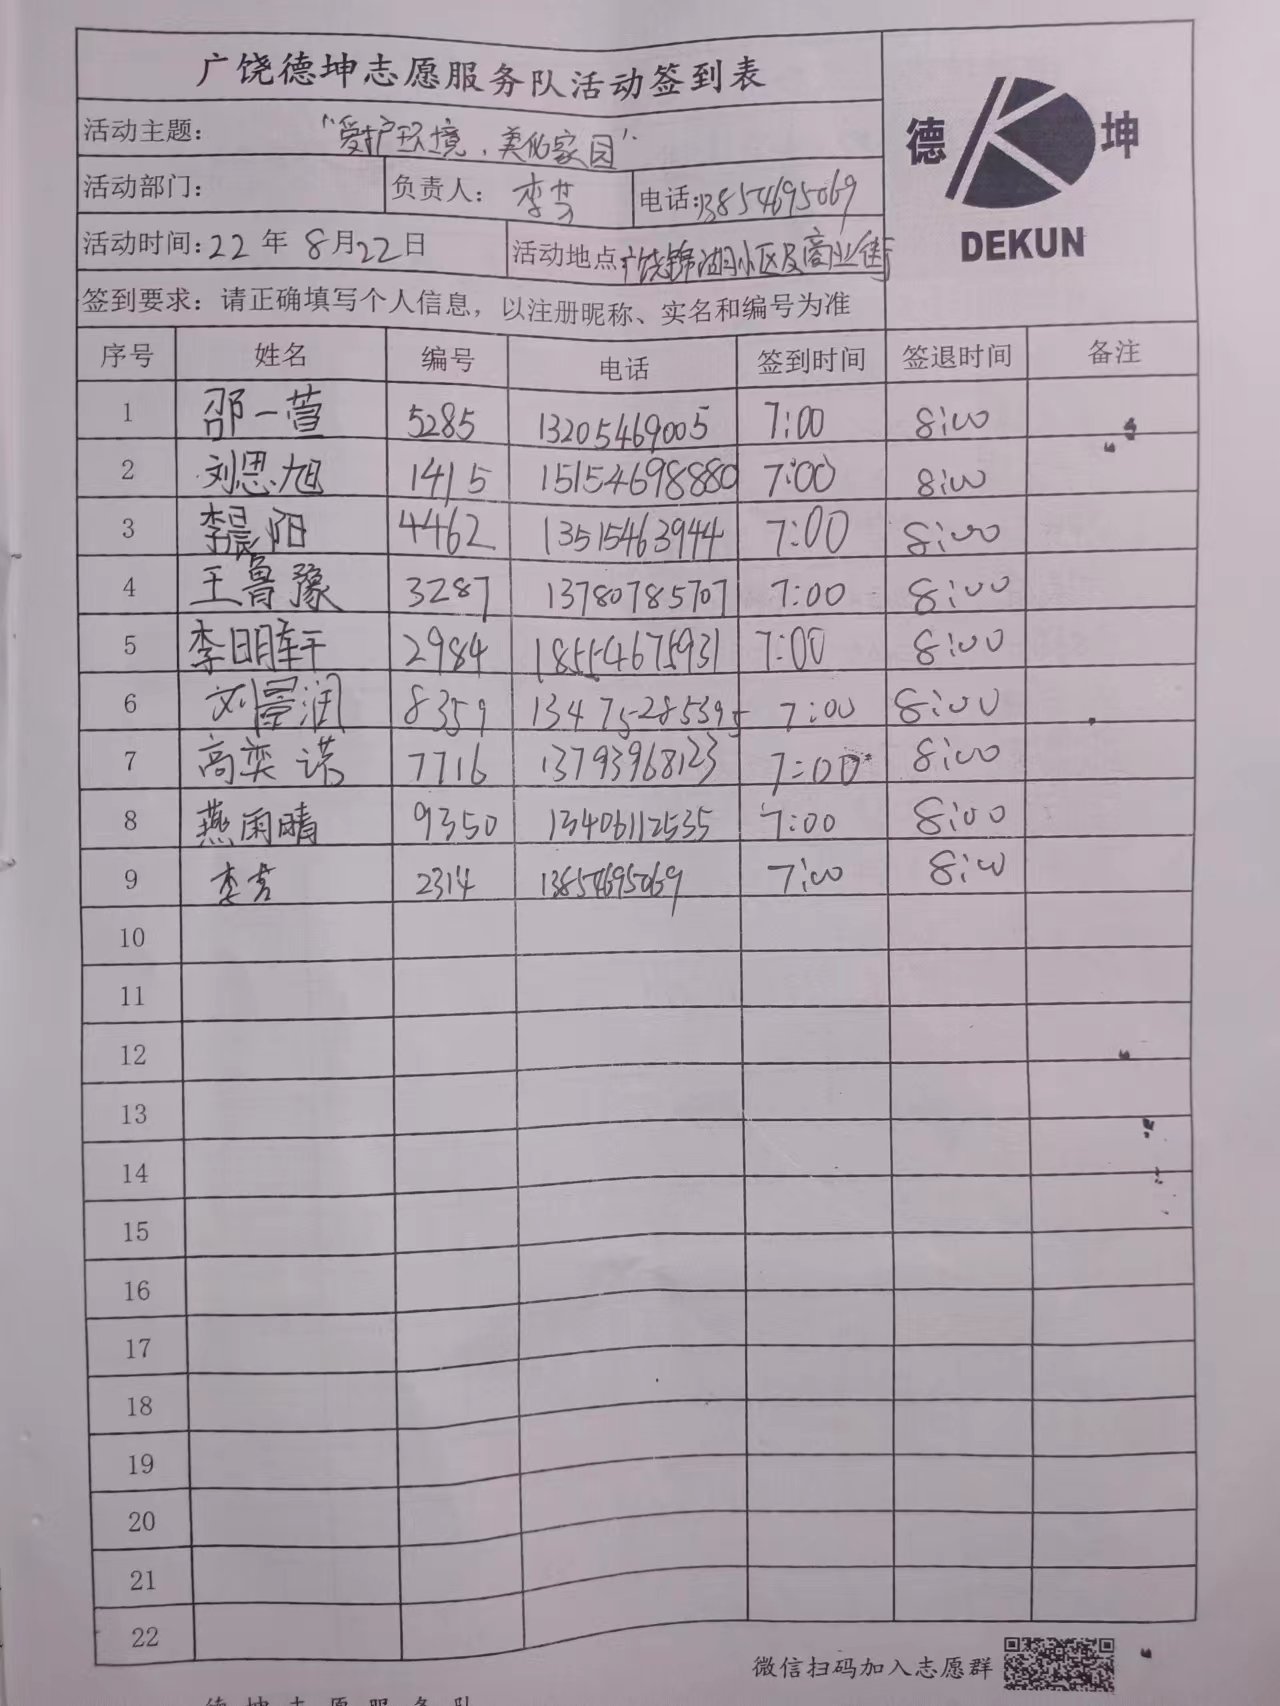 广饶德坤志愿服务队活动签到表
德 坤
DEKUN
活动主题: "爱护环境、美化家园"
活动部门: 负责人: 李芳 电话:13854695069
活动时间:22年8月22日 活动地点广饶锦湖小区及商业街
签到要求:请正确填写个人信息,以注册昵称、实名和编号为准
序号 姓名 编号 电话 签到时间 签退时间 备注
1 邵一萱 5285 13205469005 7:00 8:00
2 刘思旭 1415 15154698880 7:00 8:00
3 李晨阳 4462 13515463944 7:00 8:00
4 王鲁豫 3287 13780785707 7:00 8:00
5 李明轩 2984 18554675931 7:00 8:00
6 刘景润 8359 13475285395 7:00 8:00
7 高奕诺 7716 13793968123 7:00 8:00
8 燕雨晴 9350 13406112535 7:00 8:00
9 李芳 2314 13854695069 7:00 8:00
10
11
12
13
14
15
16
17
18
19
20
21
22
微信扫码加入志愿群
德坤志愿服务队